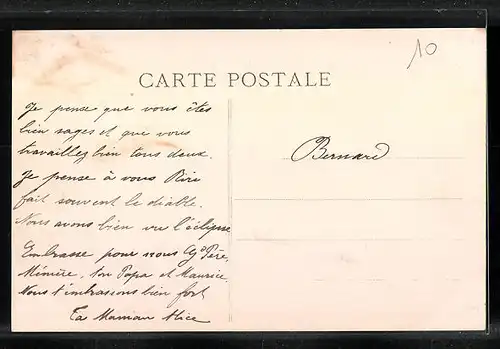 10
CARTE POSTALE
Je pense que vous êtes
bien sages et que vous
travaillez bien tous deux.
Je pense à vous Riri
fait souvent le diable.
Nous avons bien vu l'éclipse
Embrasse pour nous Gd Père,
Mémère, ton Papa et Maurice.
Nous t'embrassons bien fort
Ta Maman Alice
Bernard